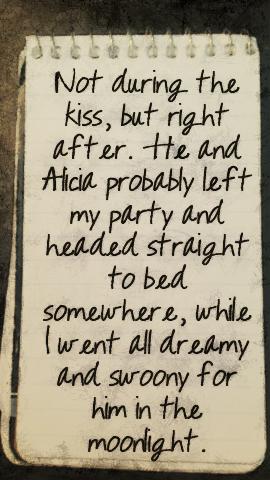 Not during the
kiss, but right
after. He and
Alicia probably left
my party and
headed straight
to bed
somewhere, while
I went all dreamy
and swoony for
him in the
moonlight.